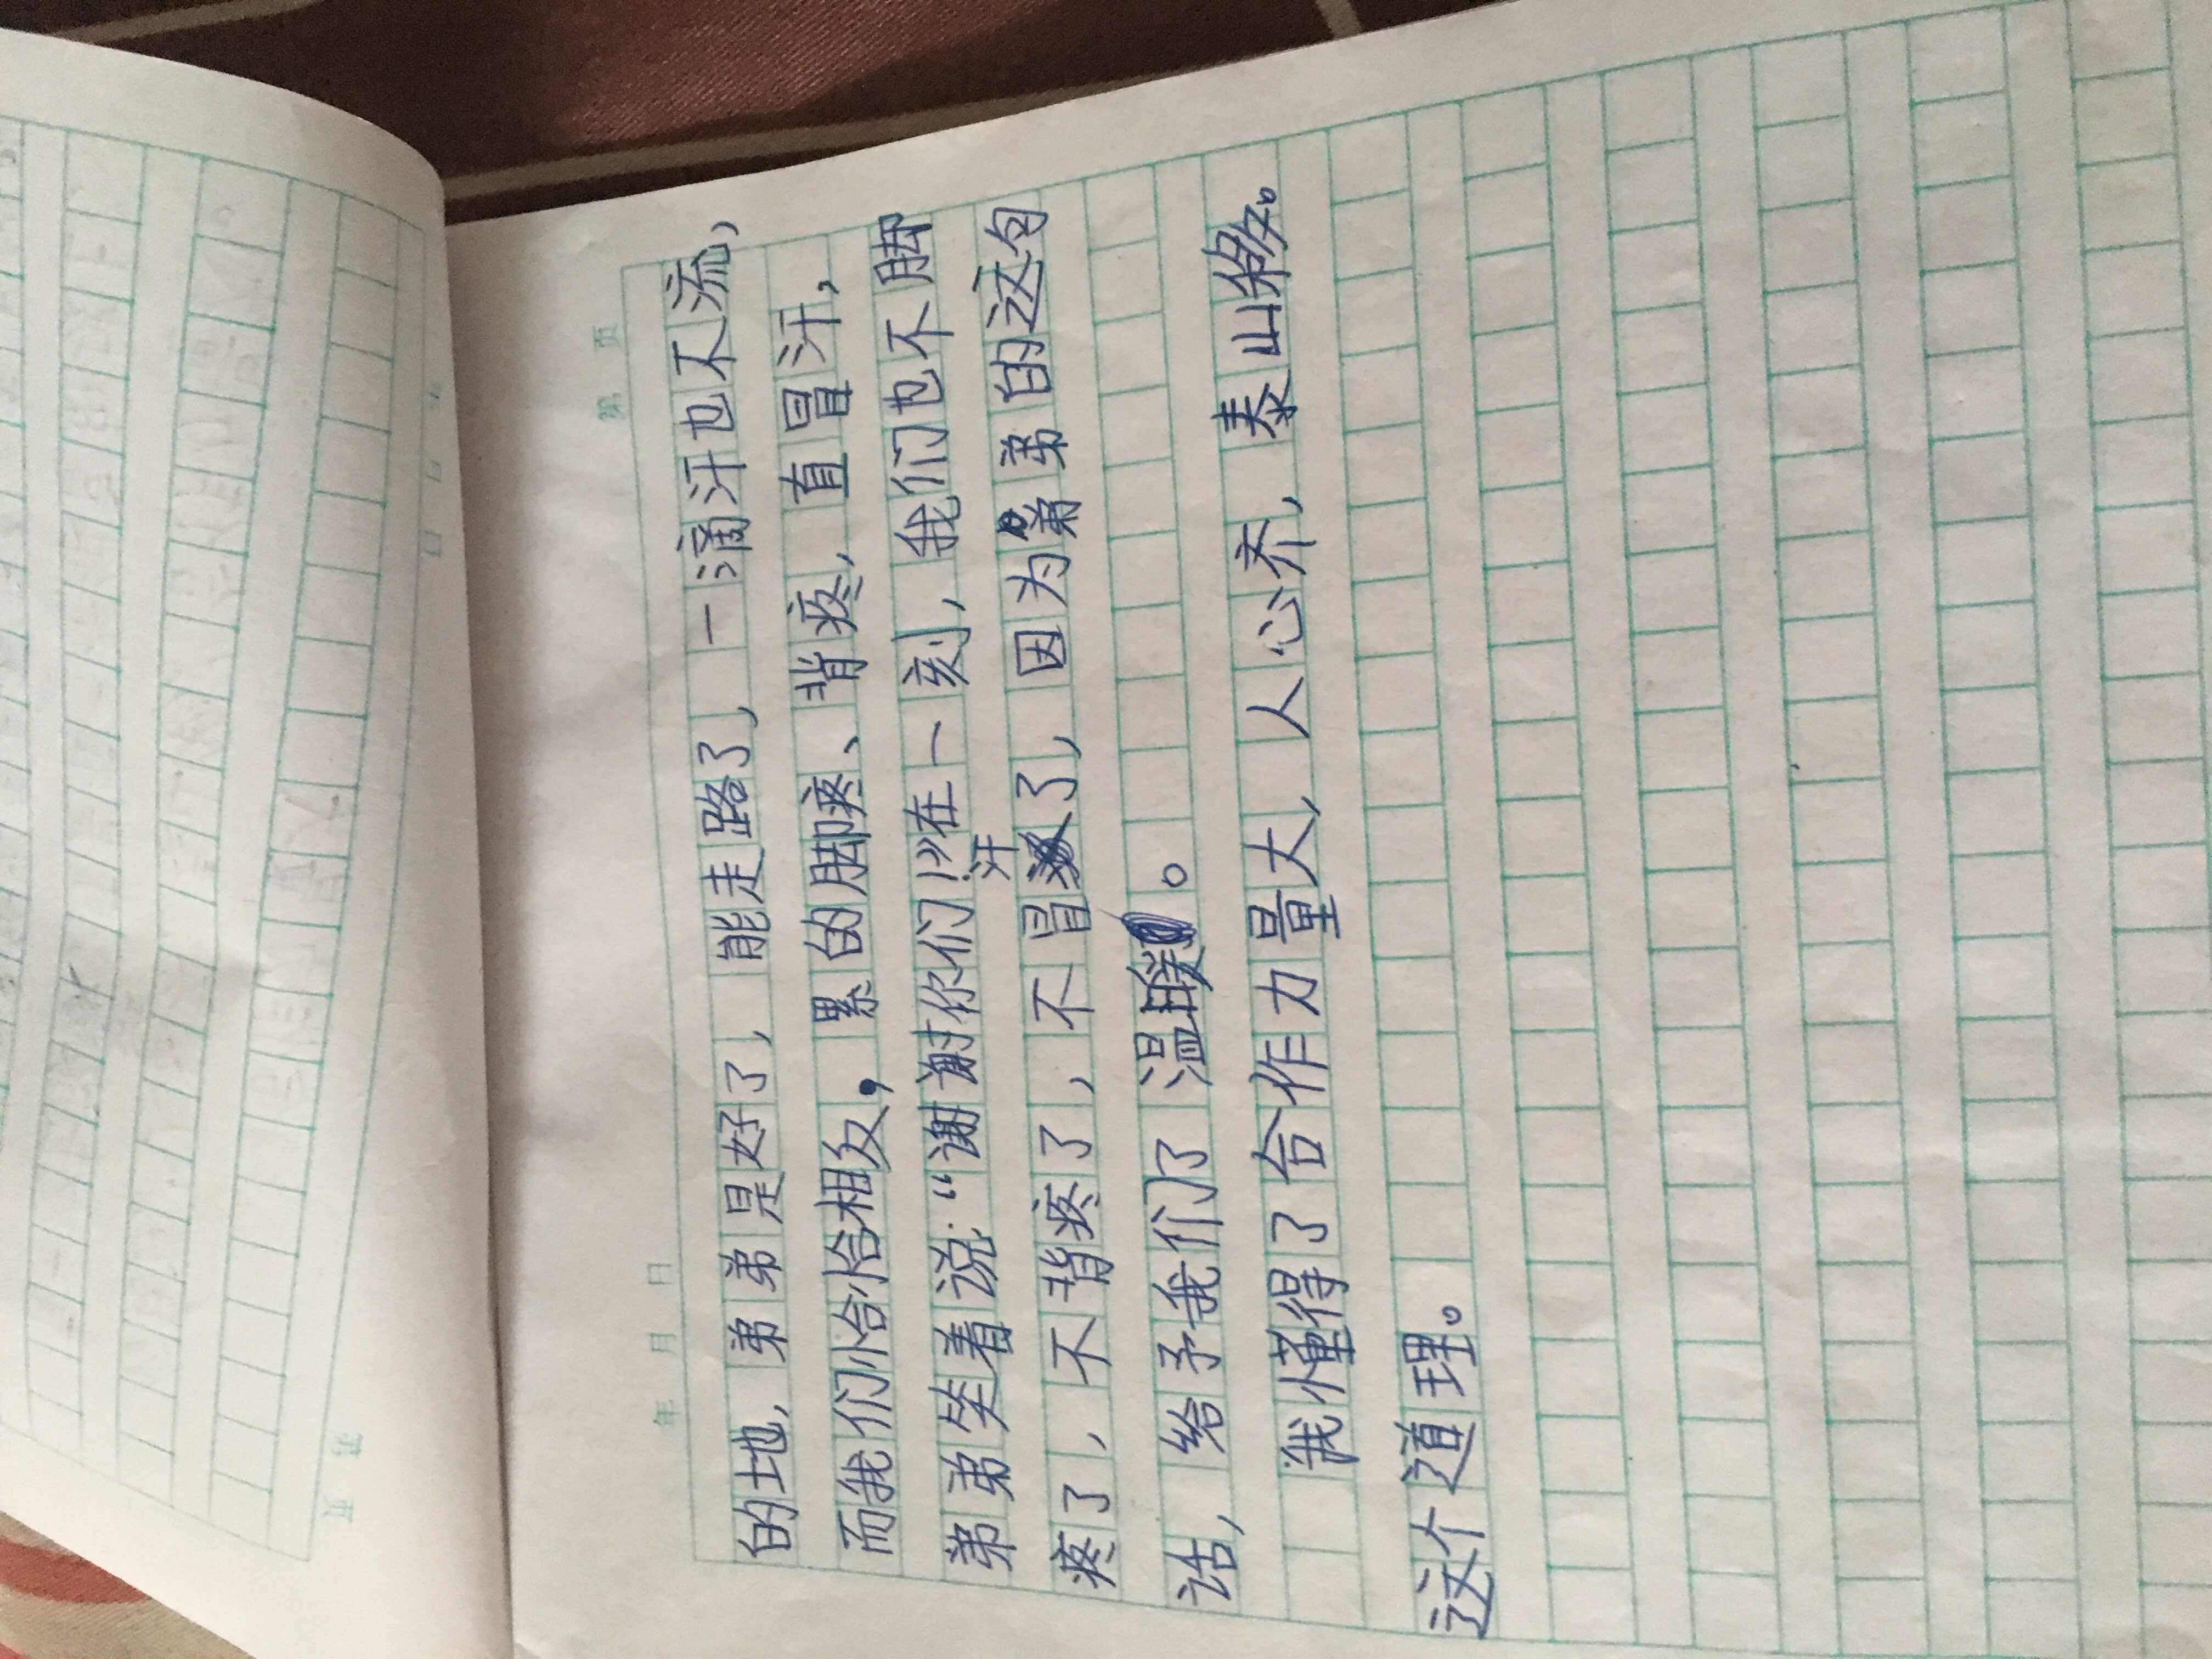 第 页
年 月 日
的地,弟弟是好了,能走路了,一滴汗也不流,
而我们恰恰相反,累的脚疼、背疼,直冒汗,
弟弟笑着说:“谢谢你们!”在一刻,我们也不脚
疼了,不背疼了,不冒汗了,因为弟弟的这句
话,给予我们了温暖。
我懂得了合作力量大,人心齐,泰山移。
这个道理。
第 页